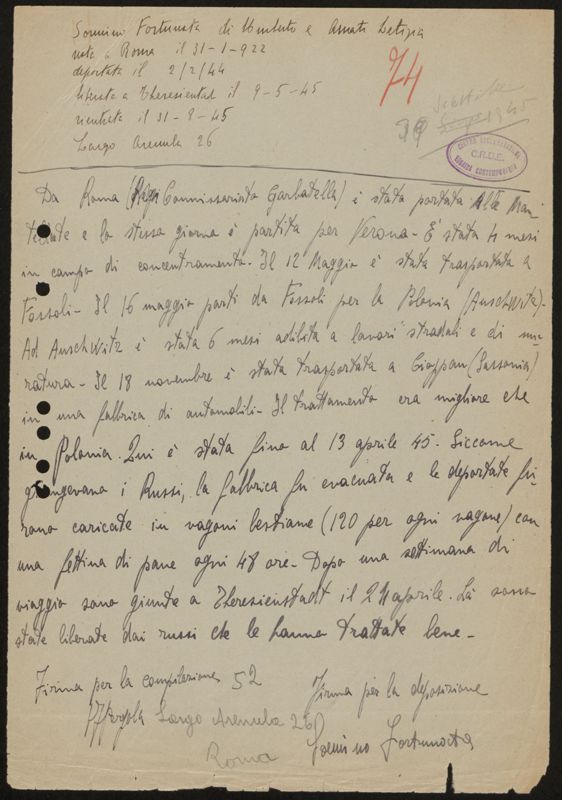 Sonnino Fortunata di Umberto e Amati Letizia
nata a Roma il 31-1-922
deportata il 2/2/44
liberata a Theresienstad il 9-5-45
rientrata il 31-8-45
Largo Arenula 26
74
1945
C.R.D.E.
Da Roma (Commissariato Garbatella) è stata portata Alle Man
tellate e lo stesso giorno è partita per Verona - È stata 4 mesi
in campo di concentramento. Il 12 Maggio è stata trasportata a
Fossoli - Il 16 maggio partì da Fossoli per la Polonia (Auschwitz) -
Ad Auschwitz è stata 6 mesi adibita a lavori stradali e di mu-
ratura - Il 18 novembre è stata trasportata a (Sassonia)
in una fabbrica di automobili - Il trattamento era migliore che
in Polonia. Qui è stata fino al 13 aprile 45 - Siccome
giungevano i Russi, la fabbrica fu evacuata e le deportate fu-
rono caricate in vagoni bestiame (120 per ogni vagone) con
una fettina di pane ogni 48 ore - Dopo una settimana di
viaggio sono giunte a Theresienstadt il 21 aprile. Là sono
state liberate dai russi che le hanno trattate bene -
Firma per la compilazione 52
Firma per la deposizione
Largo Arenula 26
Sonnino Fortunata
Roma